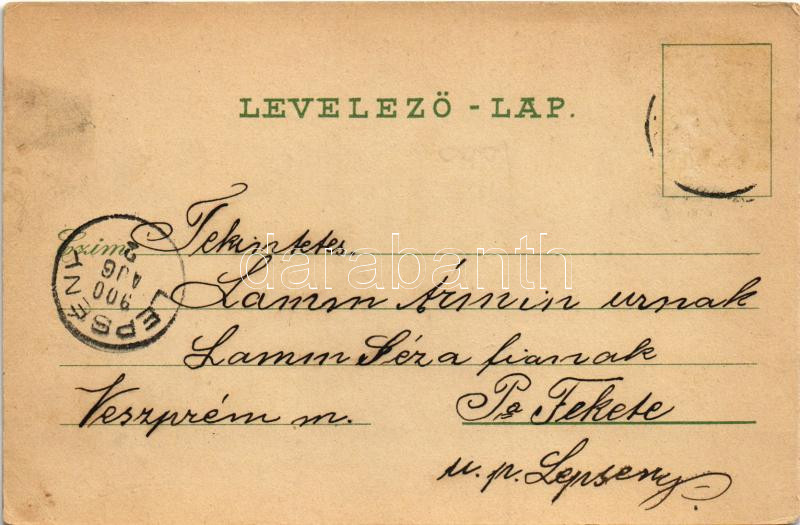 LEVELEZÖ - LAP.
Czim
Tekintetes
Lamm Ármin urnak
Lamm Géza fianak
Veszprém m.
Ps Fekete
u. p. Lepseny
LEPSÉNY
900
AUG
2
darabanth